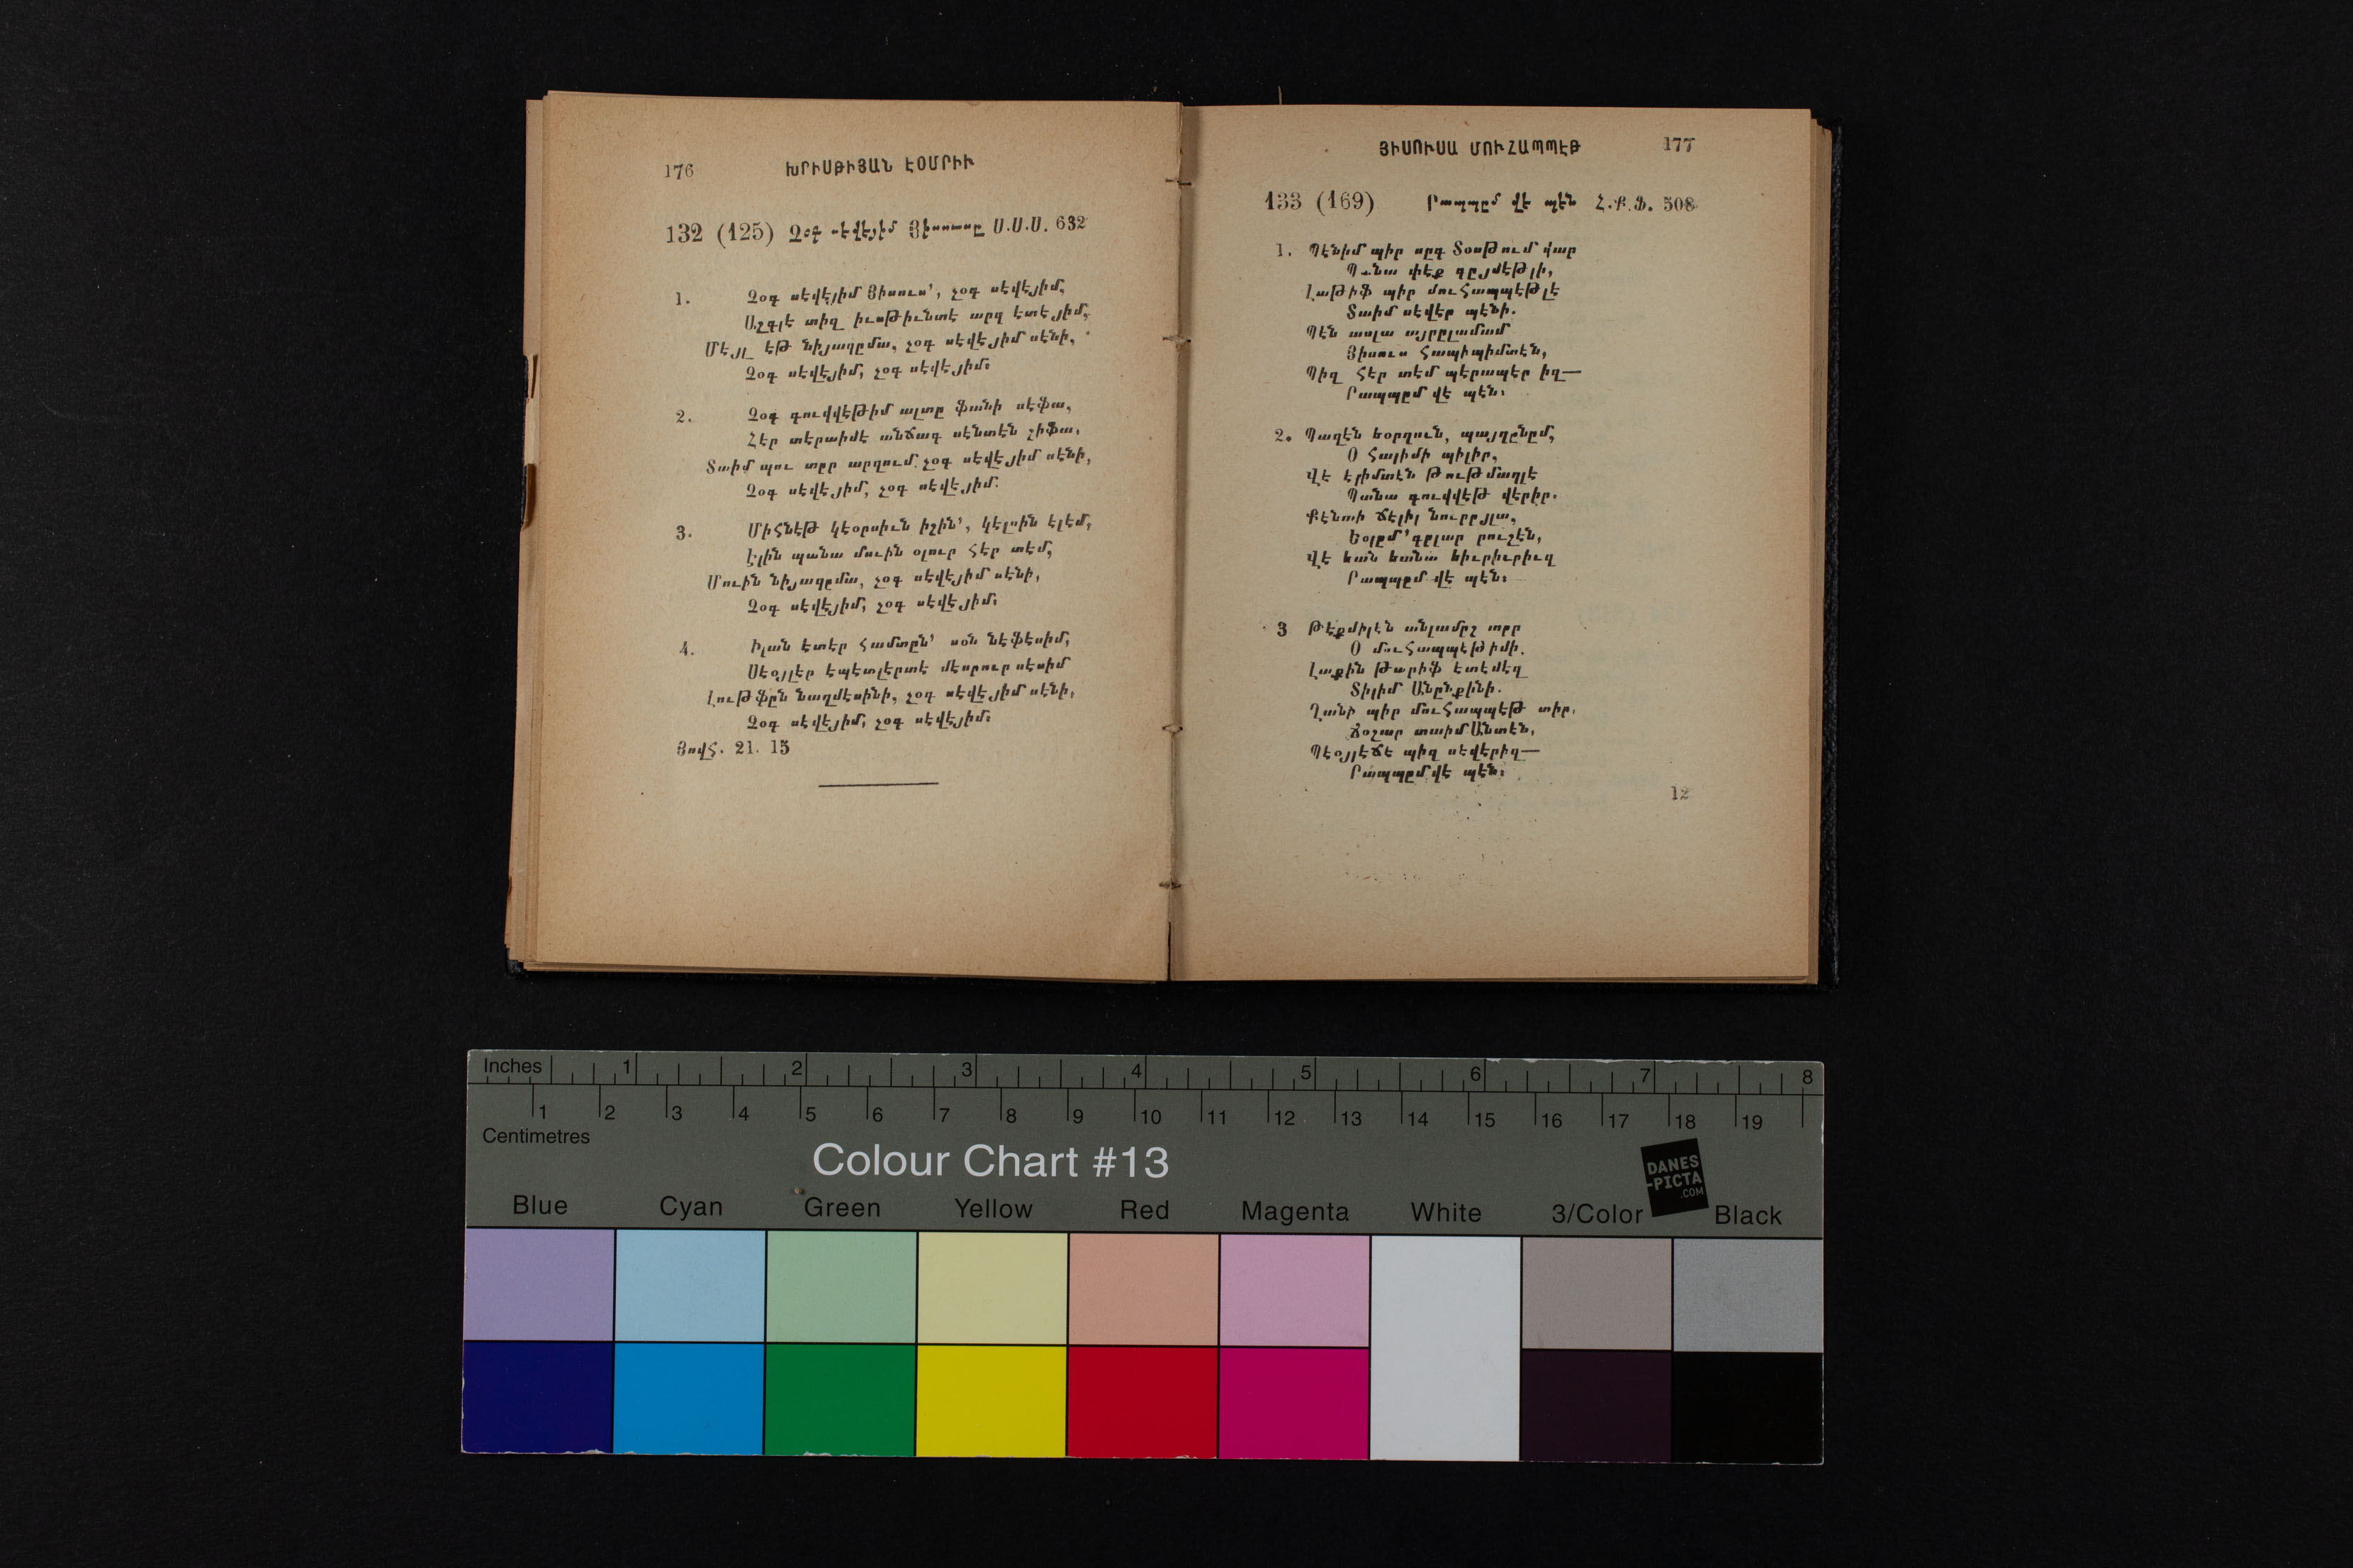 176 ԽՐԻՍԹԻՅԱՆ ԷՕՄՐԻՒ
132 (125) Չօգ սէվէյիմ Յիսուսը Ս.Ս.Ս. 632
1. Չօգ սէվէյիմ Յիսուս՚, չօգ սէվէյիմ,
Աշգլէ տիզ իւսթիւնտէ արզ էտէյիմ,
Մէյլ էթ նիյազըմա, չօգ սէվէյիմ սէնի,
Չօգ սէվէյիմ, չօգ սէվէյիմ։
2. Չօգ գուվվէթիմ ալտը ֆանի սէֆա,
Հէր տէրտիմէ անճագ սէնտէն շիֆա,
Տաիմ պու տըր արզում չօգ սէվէյիմ սէնի,
Չօգ սէվէյիմ, չօգ սէվէյիմ։
3. Միհնէթ կէօրսիւն իշին՚, կէլսին էլէմ,
Էլին պանա մուին օլուր հէր տէմ,
Մուին նիյազըմա, չօգ սէվէյիմ սէնի,
Չօգ սէվէյիմ, չօգ սէվէյիմ։
4. Իլան էտէր համտըն՚ սօն նէֆէսիմ,
Սէօյլէր էպէտլէրտէ մէսրուր սէսիմ
Լութֆըն նաղմէսինի, չօգ սէվէյիմ սէնի,
Չօգ սէվէյիմ, չօգ սէվէյիմ։
Յովհ. 21. 15
ՅԻՍՈՒՍԱ ՄՈՒՀԱՊՊԷԹ 177
133 (169) Րապպըմ վէ պէն Հ.Ք.Ֆ. 508
1. Պէնիմ պիր սըգ Տօսթում վար
Պանա փէք գըյմէթլի,
Լաթիֆ պիր մուհապպէթլէ
Տաիմ սէվէր պէնի.
Պէն ասլա այրըլամամ
Յիսուս Հապիպիմտէն,
Պիզ հէր տէմ պէրապէր իզ—
Րապպըմ վէ պէն։
2. Պազէն եօրղուն, պայղընըմ,
Օ հալիմի պիլիր,
Վէ էլիմտէն թութմաղլէ
Պանա գուվվէթ վէրիր.
Քէնտի ճէլիլ նուրըյլա,
Եօլըմ՚գըլար րուշէն,
Վէ եան եանա եիւրիւրիւզ
Րապպըմ վէ պէն։
3 Թէքմիլէն անլամըշ տըր
Օ մուհապպէթիմի.
Լաքին թարիֆ էտէմէզ
Տիլիմ Անընքինի.
Ղանի պիր մուհապպէթ տիր,
Ճօշար տաիմ Անտէն,
Պէօյլէճէ պիզ սէվէրիզ—
Րապպըմ վէ պէն։
12
Inches 1 2 3 4 5 6 7 8
1 2 3 4 5 6 7 8 9 10 11 12 13 14 15 16 17 18 19
Centimetres
Colour Chart #13
DANES
-PICTA
.COM
Blue Cyan Green Yellow Red Magenta White 3/Color Black